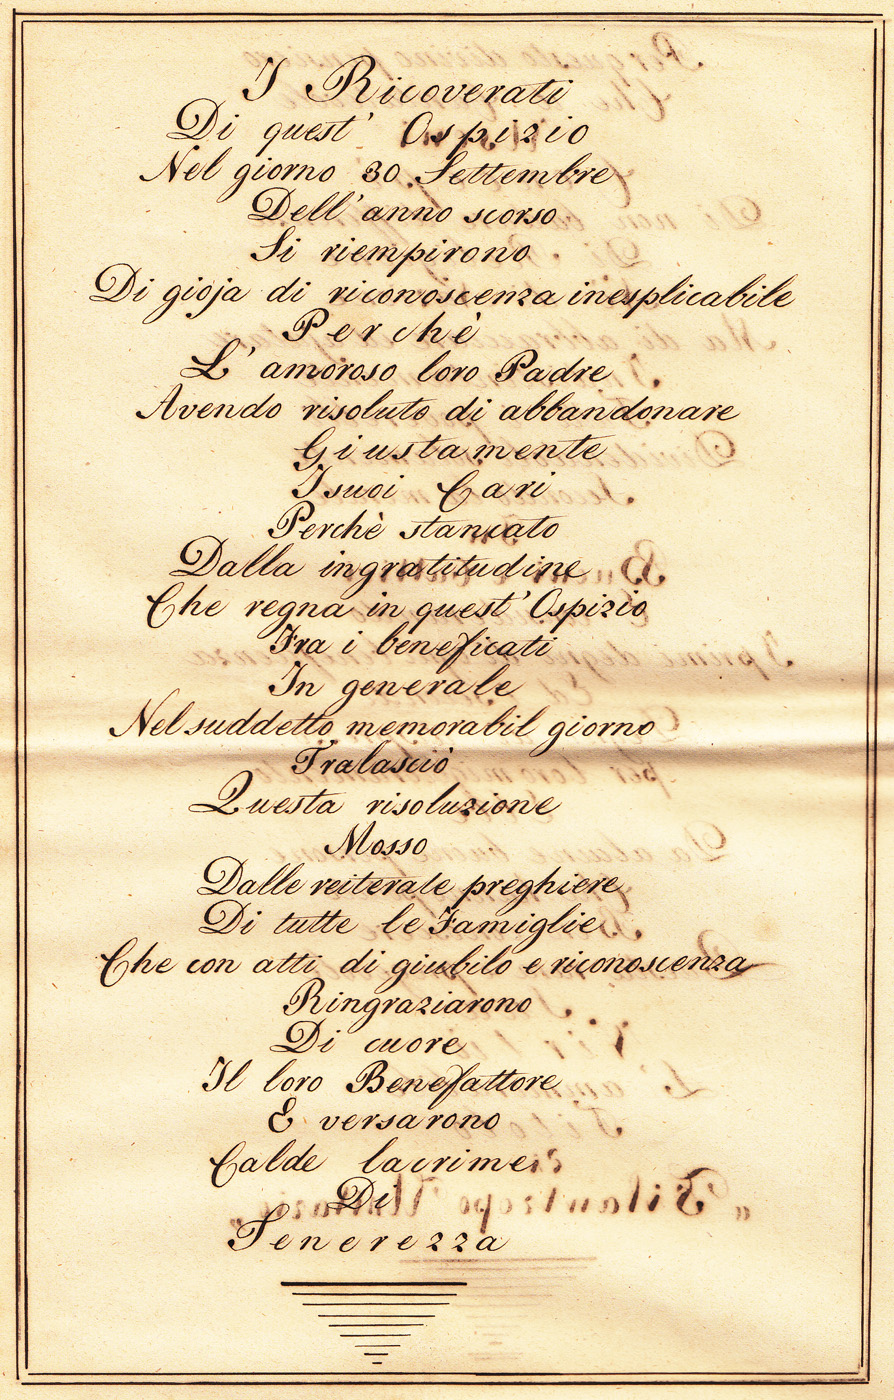 I Ricoverati
Di quest' Ospizio
Nel giorno 30 Settembre
Dell' anno scorso
Si riempirono
Di gioja di riconoscenza inesplicabile
Perchè
L' amoroso loro Padre
Avendo risoluto di abbandonare
Giustamente
I suoi Cari
Perchè stancato
Dalla ingratitudine
Che regna in quest' Ospizio
Fra i beneficati
In generale
Nel suddetto memorabil giorno
Tralasciò
Questa risoluzione
Mosso
Dalle reiterate preghiere
Di tutte le Famiglie
Che con atti di giubilo e riconoscenza
Ringraziarono
Di cuore
Il loro Benefattore
E versarono
Calde lacrime
Di
Tenerezza